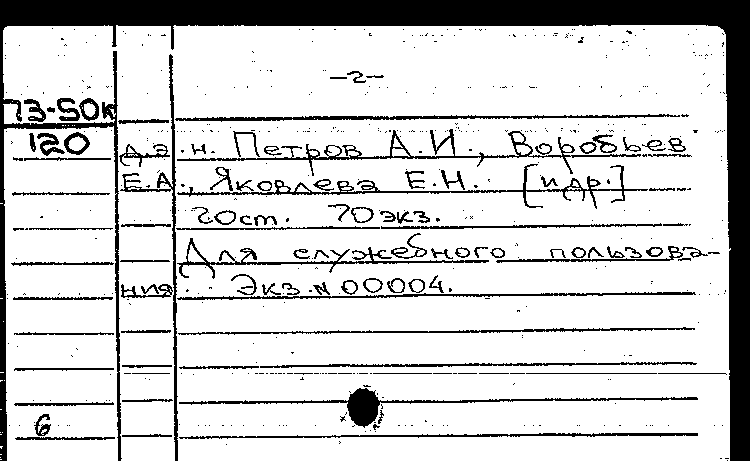 -2-
73-50к
120
д.э.н. Петров А.И., Воробьев
Е.А., Яковлева Е.Н. [и др.]
20ст. 70экз.
Для служебного пользова-
ния. Экз.№00004.
6